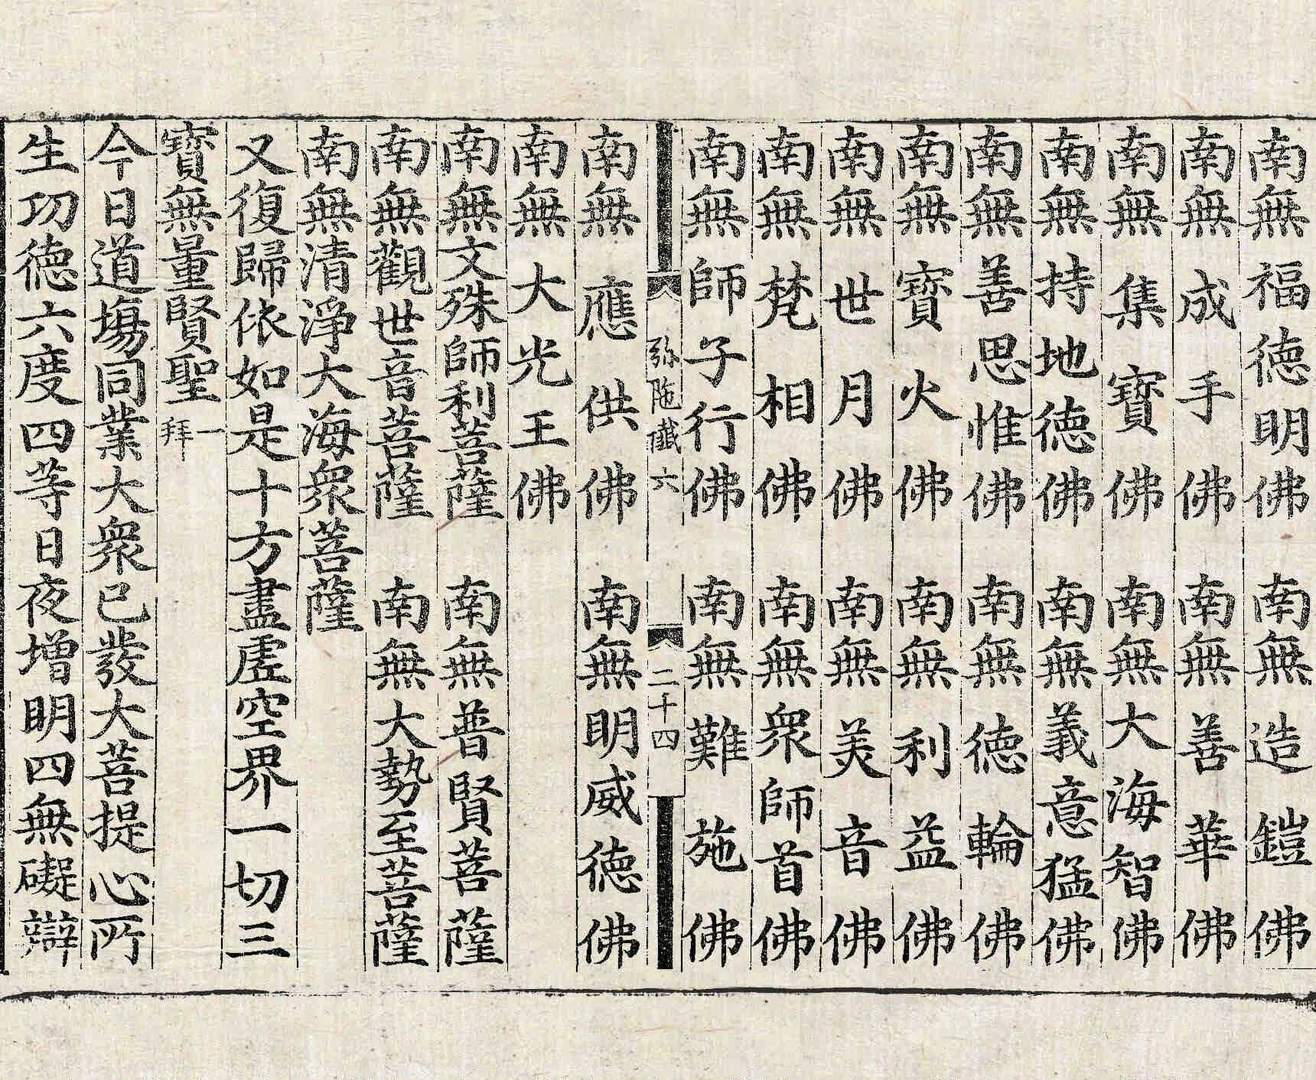 南無福德明佛 南無造鎧佛
南無成手佛 南無善華佛
南無集寶佛 南無大海智佛
南無持地德佛 南無義意猛佛
南無善思惟佛 南無德輪佛
南無寶火佛 南無利益佛
南無世月佛 南無美音佛
南無梵相佛 南無衆師首佛
南無師子行佛 南無難施佛
弥陁懴六 二十四
南無應供佛 南無明威德佛
南無大光王佛
南無文殊師利菩薩 南無普賢菩薩
南無觀世音菩薩 南無大勢至菩薩
南無清淨大海衆菩薩
又復歸依如是十方盡虛空界一切三
寶無量賢聖一拜
今日道塲同業大衆已發大菩提心所
生功德六度四等日夜增明四無礙辯